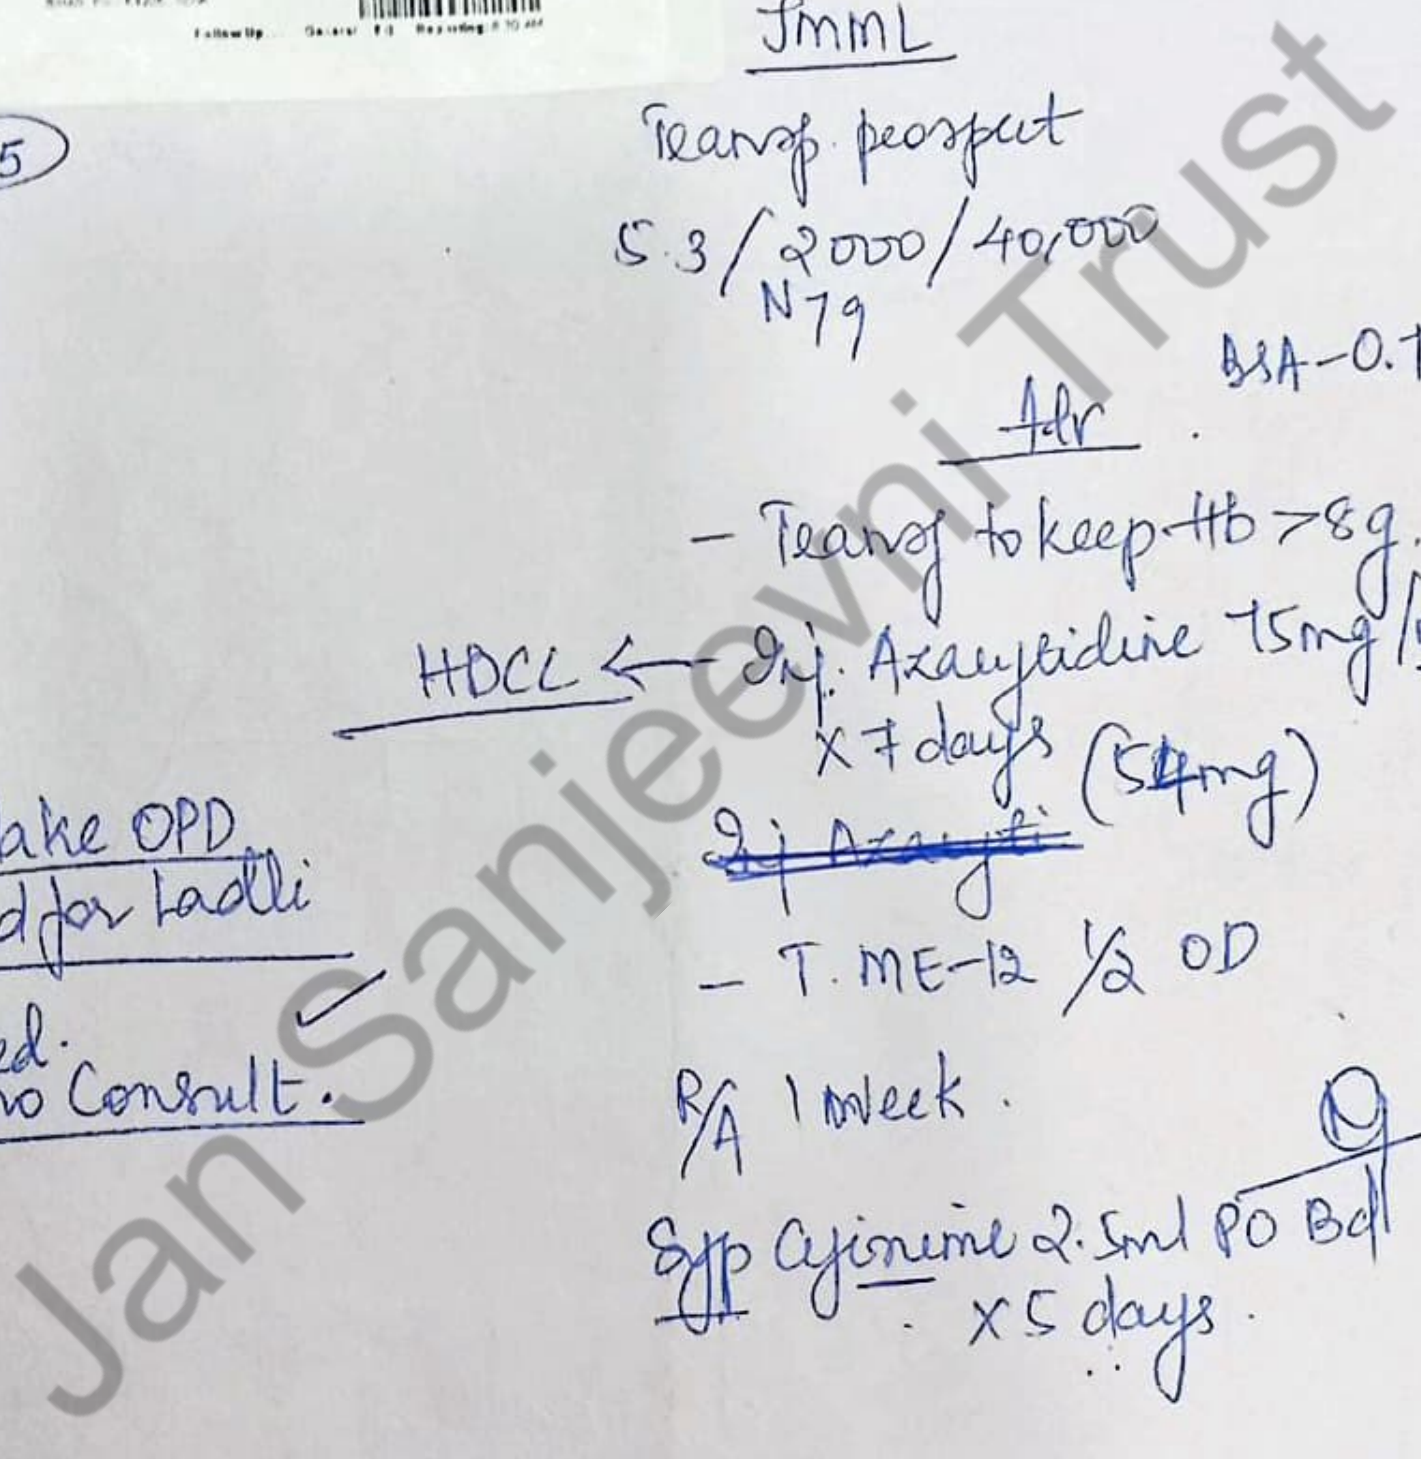 Follow Up General Reporting: 8:30 AM
JMML
5
Transf. prospect
5.3/2000/40,000
N79
BSA-0.7
Adv
- Transf to keep Hb >8g.
HDCL ← Inj. Azacytidine 75mg/
x 7 days (54mg)
Inj Azacyti
ake OPD
d for Ladli
- T. ME-12 1/2 OD
ed.
o Consult.
R/A 1 week.
Syp 2.5ml PO Bd
x 5 days.
Jan Sanjeevni Trust